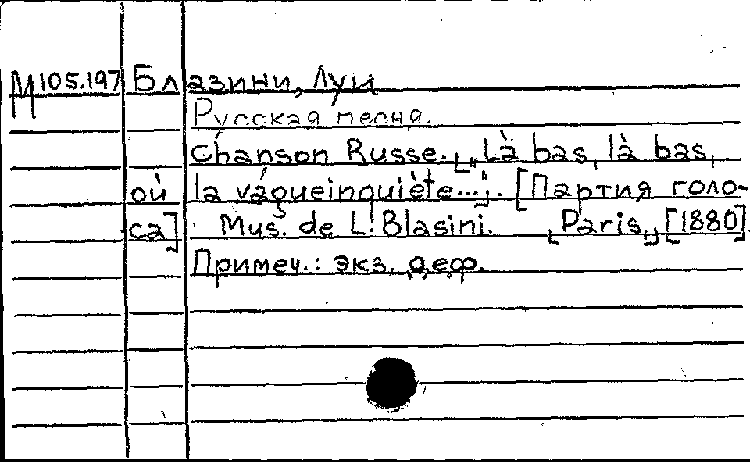 М105.197 Блазини, Луи
Русская песня.
Chanson Russe. „Là bas, là bas,
où la vagueinquiète...". [Партия голо-
са] Mus. de L. Blasini. [Paris,] [1880]
Примеч.: экз. деф.